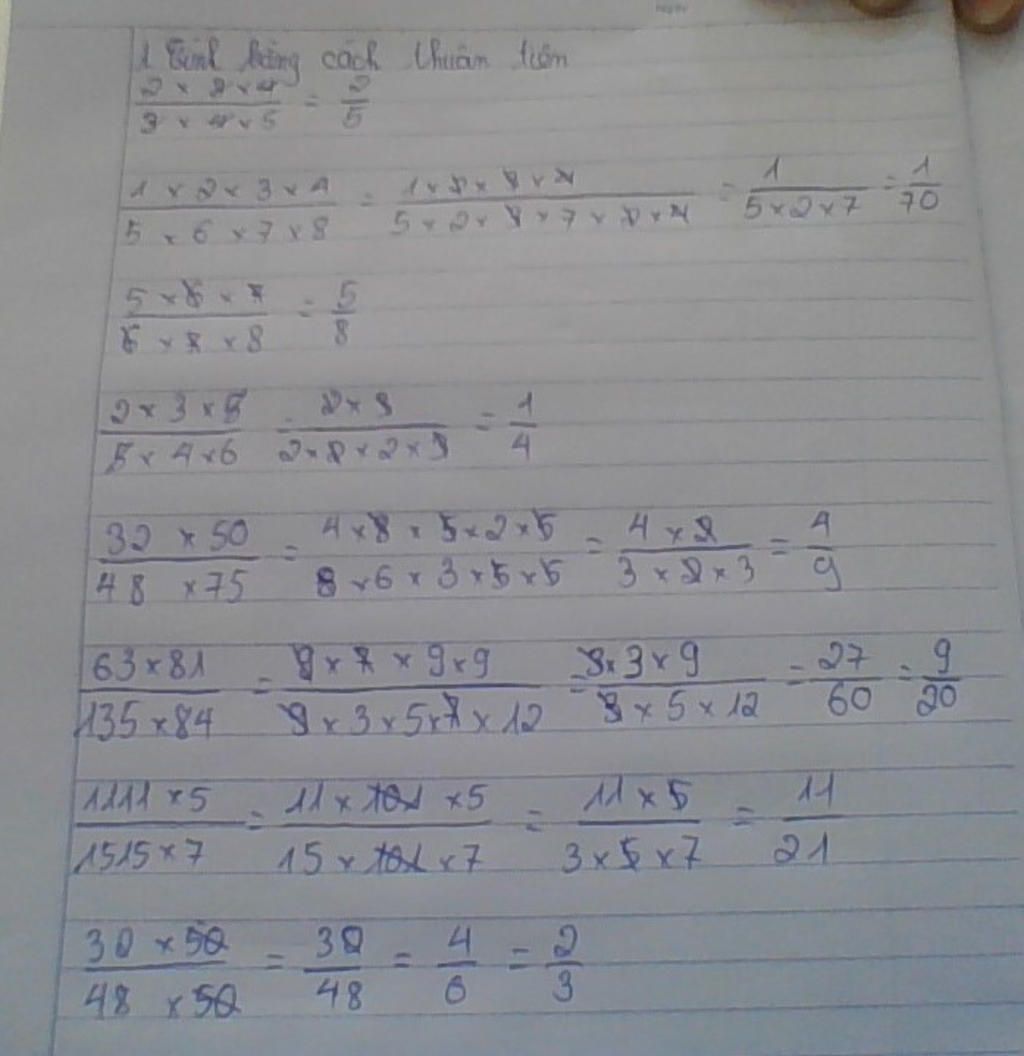 1 Tính bằng cách thuận tiện
2 × 3 × 4 / 3 × 4 × 5 = 2 / 5
1 × 2 × 3 × 4 / 5 × 6 × 7 × 8 = 1 × 2 × 3 × 4 / 5 × 2 × 3 × 7 × 2 × 4 = 1 / 5 × 2 × 7 = 1 / 70
5 × 6 × 7 / 6 × 7 × 8 = 5 / 8
2 × 3 × 5 / 5 × 4 × 6 = 2 × 3 / 2 × 2 × 2 × 3 = 1 / 4
32 × 50 / 48 × 75 = 4 × 8 × 5 × 2 × 5 / 8 × 6 × 3 × 5 × 5 = 4 × 2 / 3 × 2 × 3 = 4 / 9
63 × 81 / 135 × 84 = 9 × 7 × 9 × 9 / 9 × 3 × 5 × 7 × 12 = 3 × 3 × 9 / 3 × 5 × 12 = 27 / 60 = 9 / 20
1111 × 5 / 1515 × 7 = 11 × 101 × 5 / 15 × 101 × 7 = 11 × 5 / 3 × 5 × 7 = 11 / 21
32 × 50 / 48 × 50 = 32 / 48 = 4 / 6 = 2 / 3